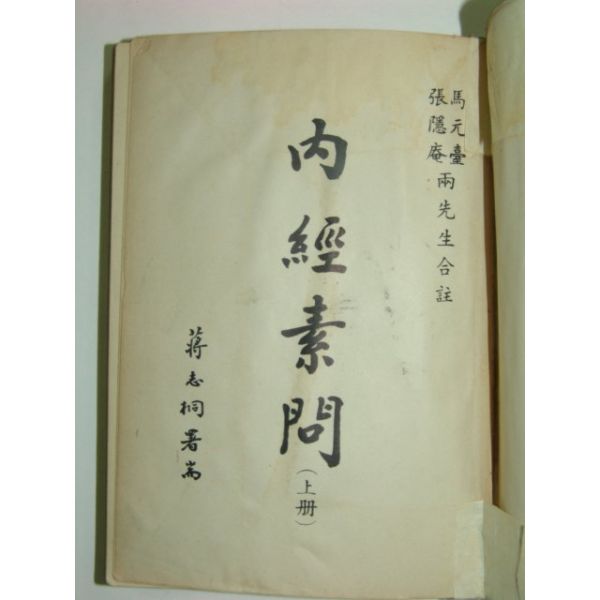 馬元臺
張隱菴兩先生合註
內經素問(上册)
蔣志桐署耑